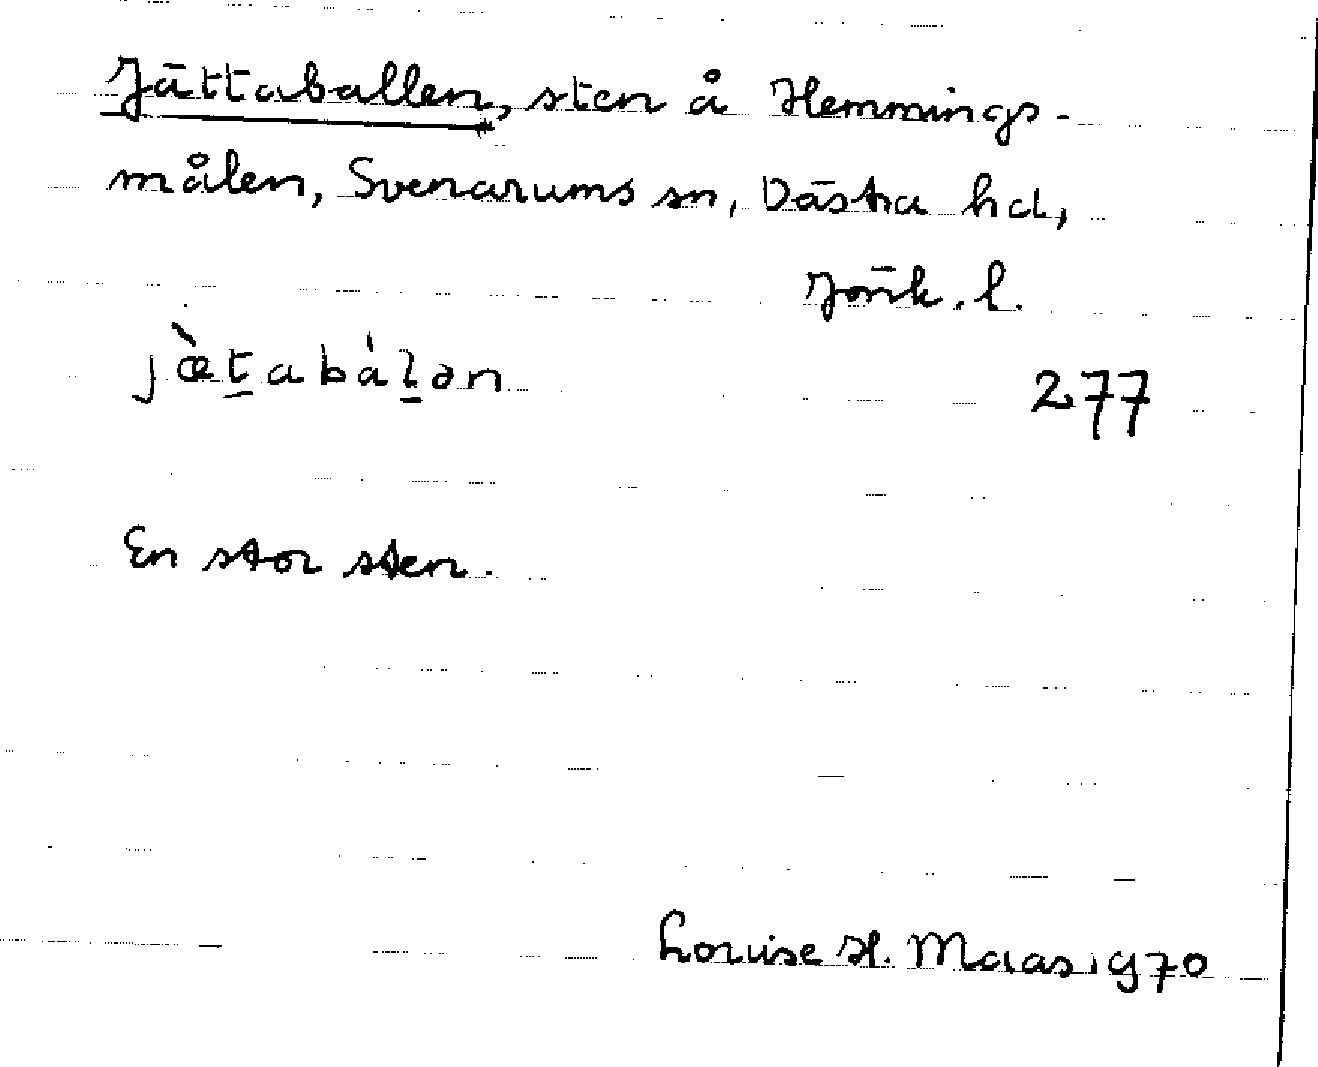 Jättaballen, sten å Hemmings-
målen, Svenarums sn, Västra hd,
Jönk. l.
jæ̀t̠abál̠ən
277
En stor sten.
Louise H. Maas 1970